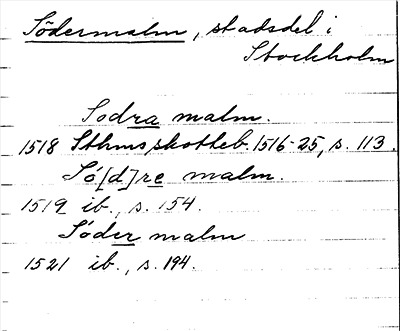 Södermalm, stadsdel i
Stockholm
Sodra malm.
1518 Sthms skotteb. 1516-25, s. 113.
Sö[d]re malm.
1519 ib., s. 154.
Söder malm
1521 ib., s. 194.